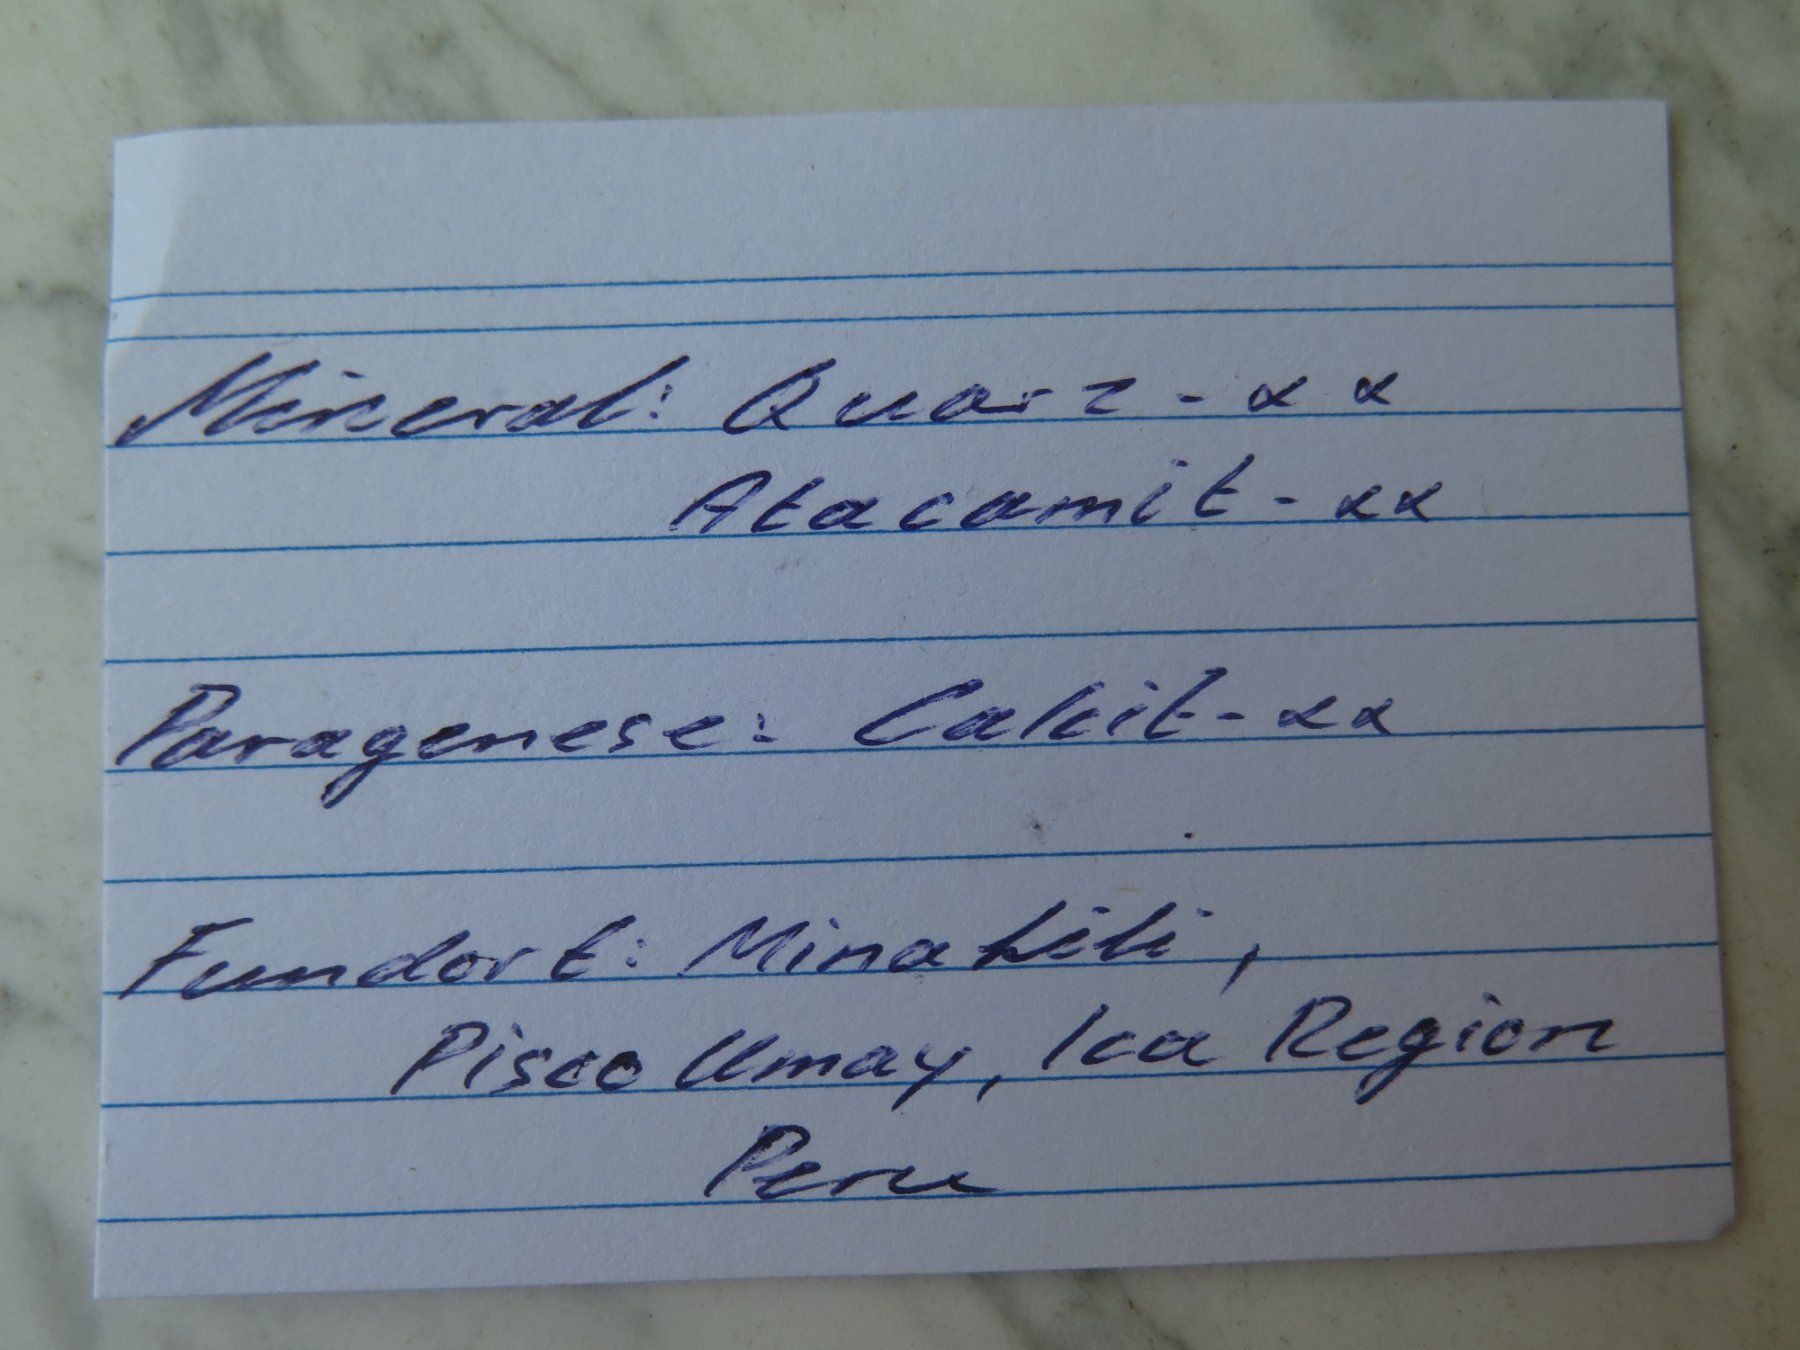 Mineral: Quarz - xx
Atacamit - xx
Paragenese: Calcit - xx
Fundort: Mina Lili,
Pisco Umay, Ica Region
Peru